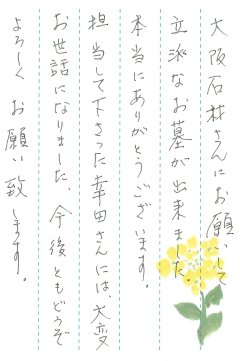 大阪石材さんにお願いして
立派なお墓が出来ました。
本当にありがとうございます。
担当して下さった幸田さんには、大変
お世話になりました、今後ともどうぞ
よろしく お願い致します。